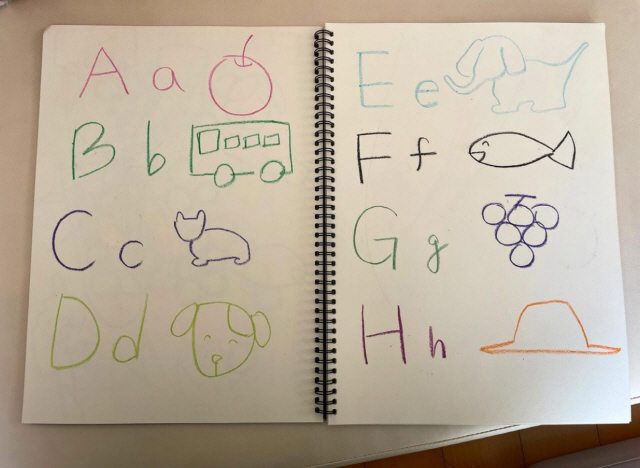 A a
B b
C c
D d
E e
F f
G g
H h